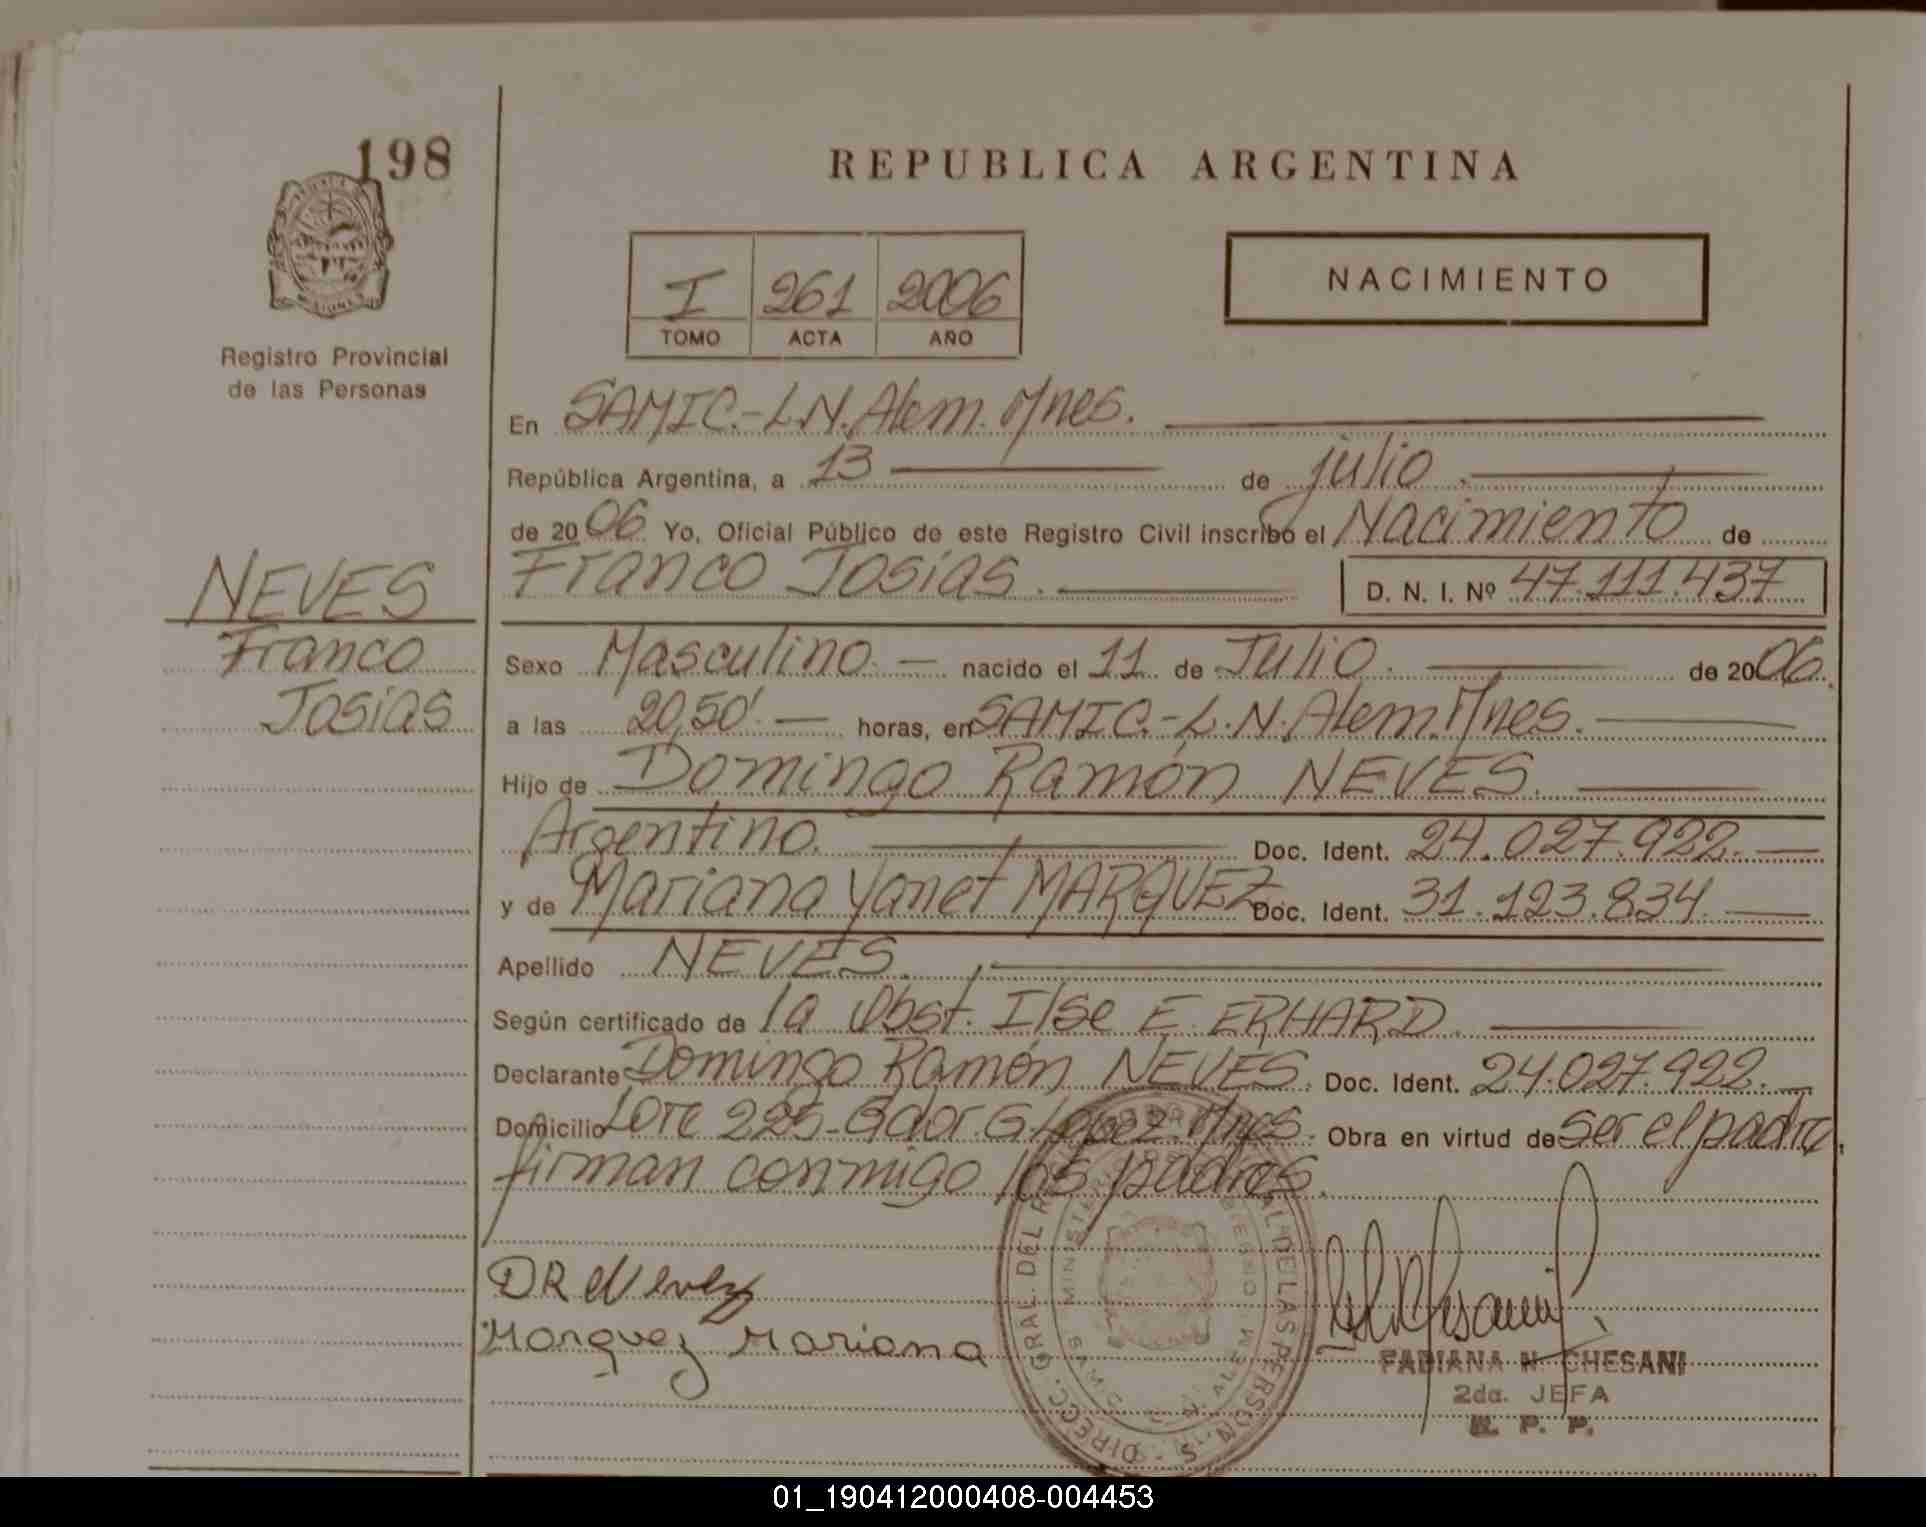 198
REPUBLICA ARGENTINA
I 261 2006
TOMO ACTA AÑO
NACIMIENTO
Registro Provincial
de las Personas
En SAMIC.-L.N. Alem. Mnes.
República Argentina, a 13 de julio.
de 2006 Yo, Oficial Público de este Registro Civil inscribo el Nacimiento de
Franco Josías. D. N. I. Nº 47.111.437
NEVES
Franco
Josías
Sexo Masculino. nacido el 11 de Julio. de 2006.
a las 20,50'. horas, en SAMIC.-L.N. Alem. Mnes.
Hijo de Domingo Ramón NEVES.
Argentino. Doc. Ident. 24.027.922.
y de Mariana Yanet MARQUEZ Doc. Ident. 31.123.834.
Apellido NEVES.
Según certificado de la Obst. Ilse E. ERHARD.
Declarante Domingo Ramón NEVES. Doc. Ident. 24.027.922.
Domicilio Lote 225-Gdor. G. López. Mnes. Obra en virtud de ser el padre,
firman conmigo los padres.
DR Nevez
Marquez Mariana
DIRECC. GRAL. DEL R AL DE LAS PERSONAS
L. N. ALEM
FABIANA N. CHESANI
2da. JEFA
R. P. P.
01_190412000408-004453